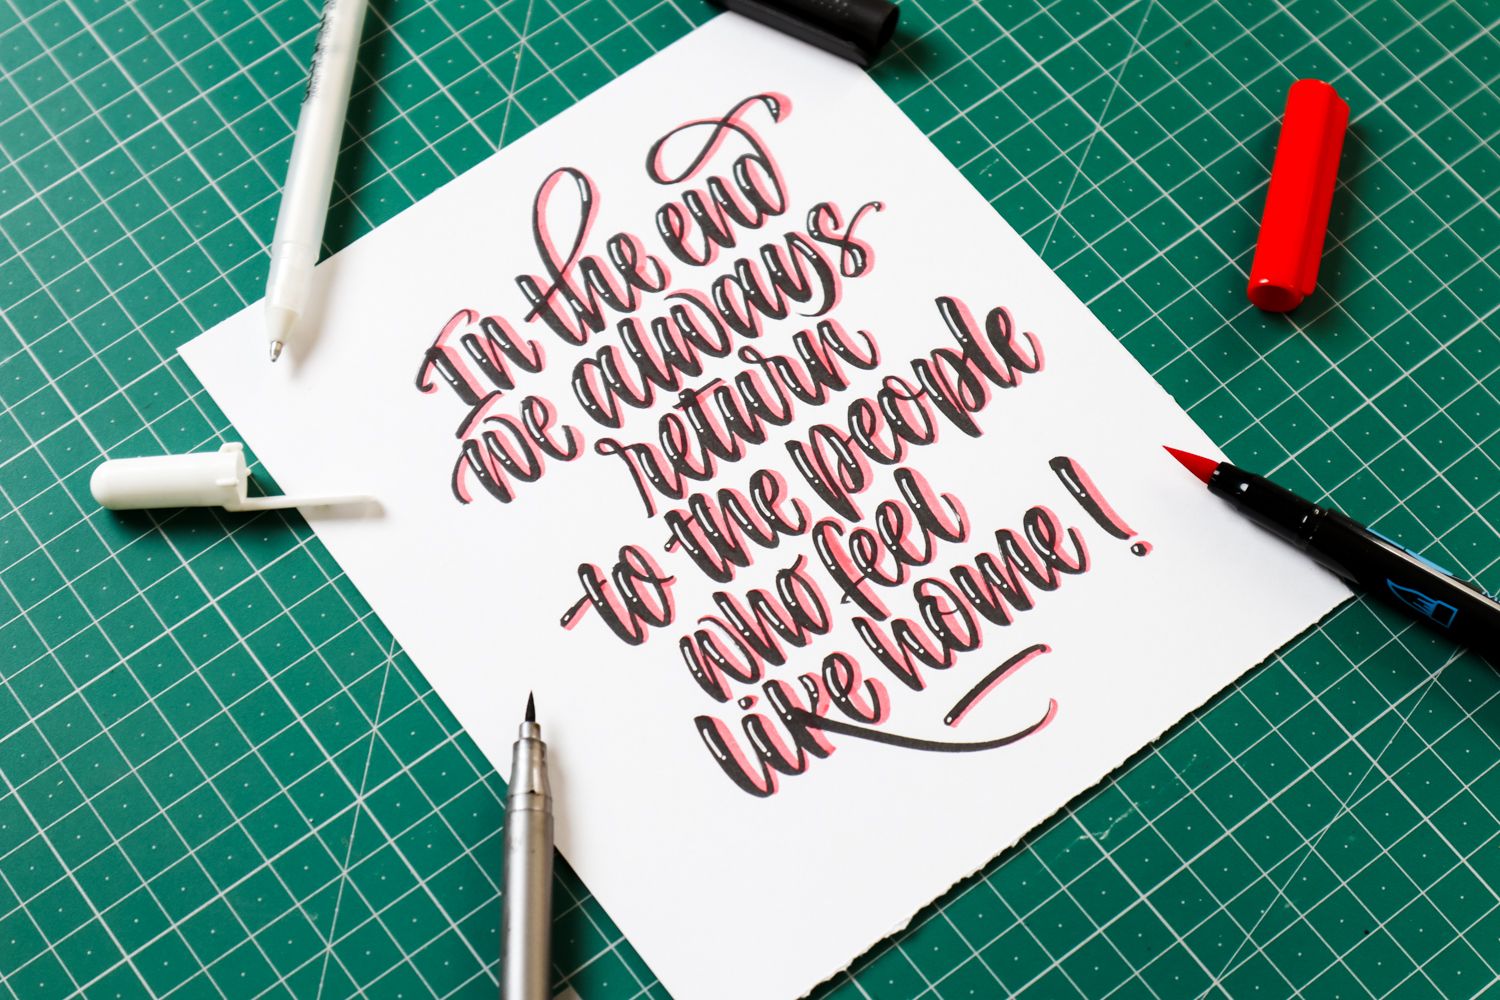 In the end
we always
return
to the people
who feel
like home!